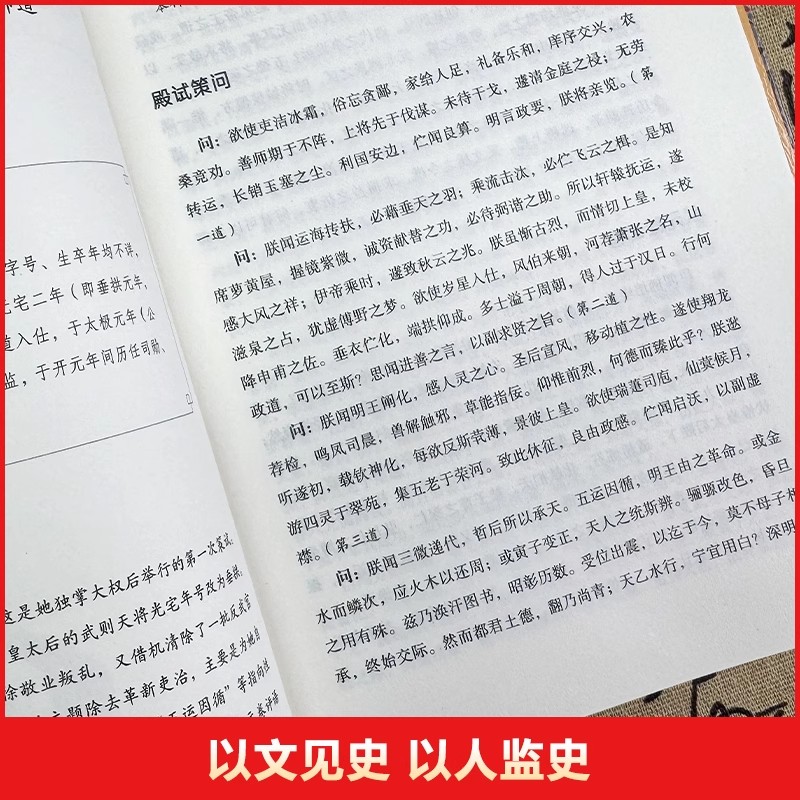 字号、生卒年均不详，
光宅二年（即垂拱元年，
道入仕，于太极元年（公
监，于开元年间历任司勋、
这是她独掌大权后举行的第一次策试，
皇太后的武则天将光宅年号改为垂拱，
徐敬业叛乱，又借机清除了一批反武官
主题除去革新吏治，主要是为她自
五运因循”等指向性
殿试策问
问：欲使吏洁冰霜，俗忘贪鄙，家给人足，礼备乐和，庠序交兴，农
桑竞劝。善师期于不阵，上将先于伐谋。未待干戈，遽清金庭之祲；无劳
转运，长销玉塞之尘。利国安边，伫闻良算。明言政要，朕将亲览。（第
一道）
问：朕闻运海抟扶，必藉垂天之羽；乘流击汰，必伫飞云之楫。是知
席萝黄屋，握镜紫微，诚资献替之功，必待弼谐之助。所以轩辕抚运，遂
感大风之祥；伊帝乘时，遂致秋云之兆。朕虽惭古烈，而情切上皇，未校
滋泉之占，犹虚傅野之梦。欲使岁星入仕，风伯来朝，河荐萧张之名，山
降申甫之佐。垂衣伫化，端拱仰成。多士溢于周朝，得人过于汉日。行何
政道，可以至斯？思闻进善之言，以副求贤之旨。（第二道）
问：朕闻明王阐化，感人灵之心。圣后宣风，移动植之性。遂使翔龙
荐检，鸣凤司晨，兽解触邪，草能指佞。仰惟前烈，何德而臻此乎？朕逖
听遂初，载钦神化，每欲反斯莪薄，景彼上皇。欲使瑞萐司庖，仙蓂候月，
游四灵于翠苑，集五老于荣河。致此休征，良由政感。伫闻启沃，以副虚
襟。（第三道）
问：朕闻三微递代，哲后所以承天。五运因循，明王由之革命。或金
水而鳞次，应火木以还周；或寅子变正，天人之统斯辨。骊騵改色，昏旦
之用有殊。兹乃涣汗图书，昭彰历数。受位出震，以迄于今，莫不母子相
承，终始交际。然而都君土德，翻乃尚青；天乙水行，宁宜用白？深明
以文见史 以人监史